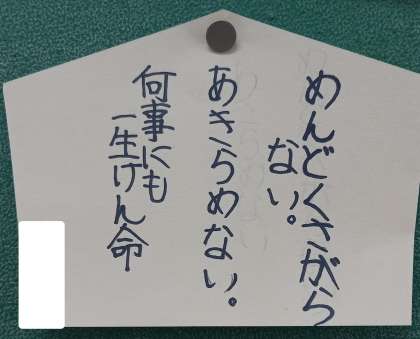 めんどくさがら
ない。
あきらめない。
何事にも
一生けん命